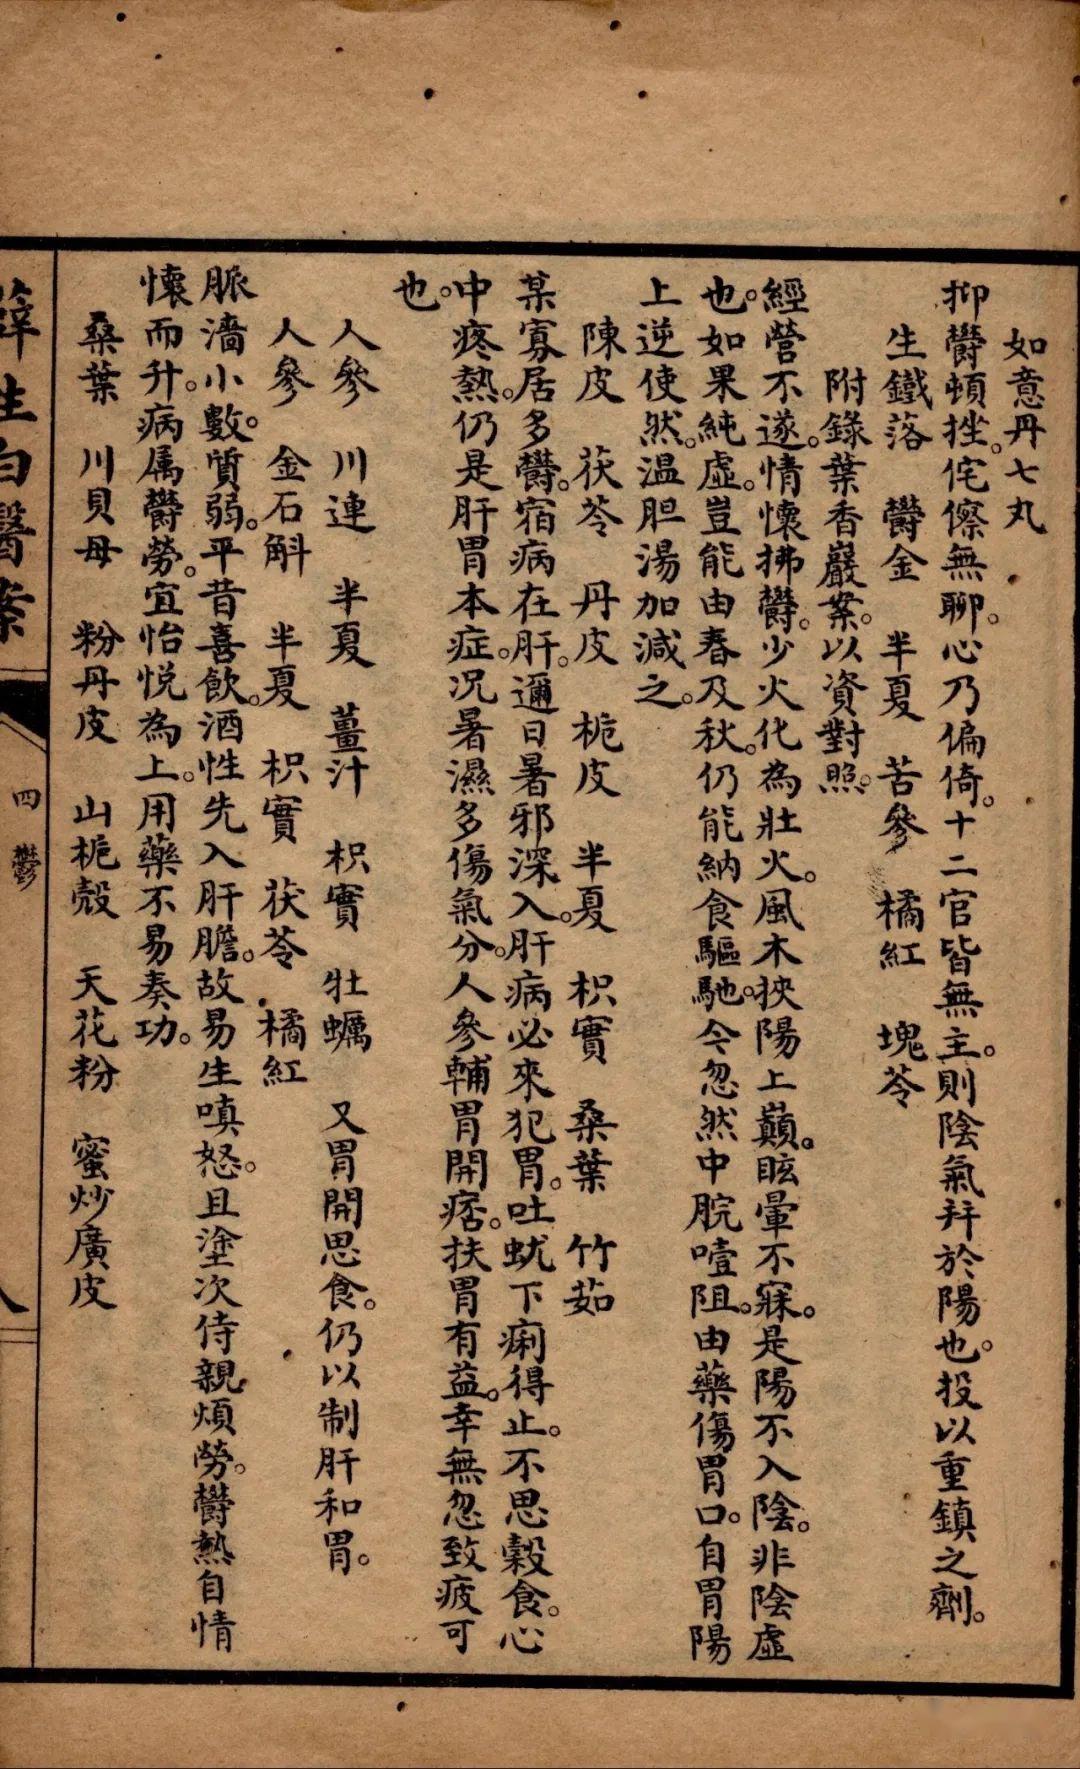 如意丹七丸
抑鬱頓挫。侘傺無聊。心乃偏倚。十二官皆無主。則陰氣幷於陽也。投以重鎮之劑。
生鐵落　鬱金　半夏　苦參　橘紅　塊苓
附錄葉香巖案。以資對照。
經營不遂。情懷拂鬱。少火化為壯火。風木挾陽上巔。眩暈不寐。是陽不入陰。非陰虛
也。如果純虛。豈能由春及秋。仍能納食驅馳。今忽然中脘噎阻。由藥傷胃口。自胃陽
上逆使然。温胆湯加減之。
陳皮　茯苓　丹皮　梔皮　半夏　枳實　桑葉　竹茹
某寡居多鬱。宿病在肝。邇日暑邪深入。肝病必來犯胃。吐蚘下痢得止。不思穀食。心
中疼熱。仍是肝胃本症。況暑濕多傷氣分。人參輔胃開痞。扶胃有益。幸無忽致疲可
也。
人參　川連　半夏　薑汁　枳實　牡蠣　又胃開思食。仍以制肝和胃。
人參　金石斛　半夏　枳實　茯苓　橘紅
脈濇小數。質弱。平昔喜飲。酒性先入肝膽。故易生嗔怒。且塗次侍親煩勞。鬱熱自情
懷而升。病属鬱勞。宜怡悅為上。用藥不易奏功。
桑葉　川貝母　粉丹皮　山梔殼　天花粉　蜜炒廣皮
薛生白醫案
四　鬱
八